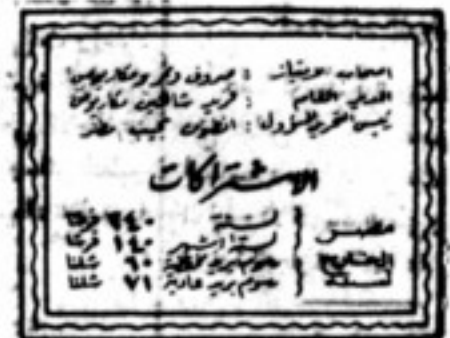 اصحاب الامتياز : صروف ونمر ومكاريوس
المدير العام : فريد شاهين مكاريوس
رئيس التحرير المسؤول : انطون نجيب مطر
الاشتراكات
مصر لسنة ٢٤٠ قرشا
لستة اشهر ١٤٠ قرشا
الخارج ٦٠ شلنا
لسنة برسوم بريد عادية ٧١ شلنا